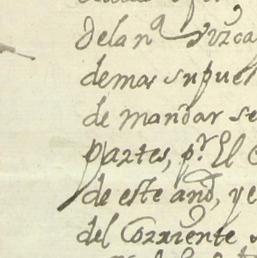 de la n.ª Vizca
demas supues
de mandar se
Partes, p.r El C
de este año, ye
del Corriente